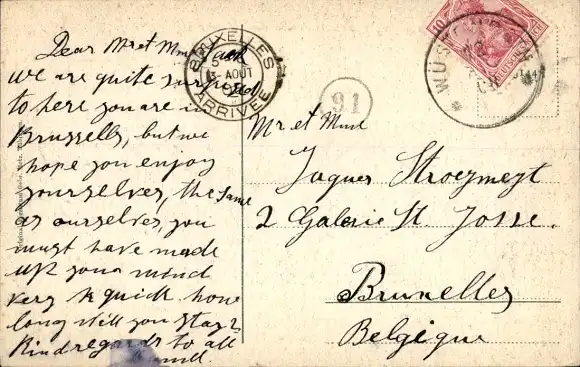 Dear Mr et Mme
we are quite surprised
to here you are in
Brussells, but we
hope you enjoy
yourselves, the same
as ourselves, you
must have made
up your mind
very quick how
long will you stay?
Kind regards to all
BRUXELLES
5
AOUT
ARRIVEE
91
10
WÜS
Mr et Mme
Jaques Stroeymeyt
2 Galerie St. Josse.
Bruxelles
Belgique